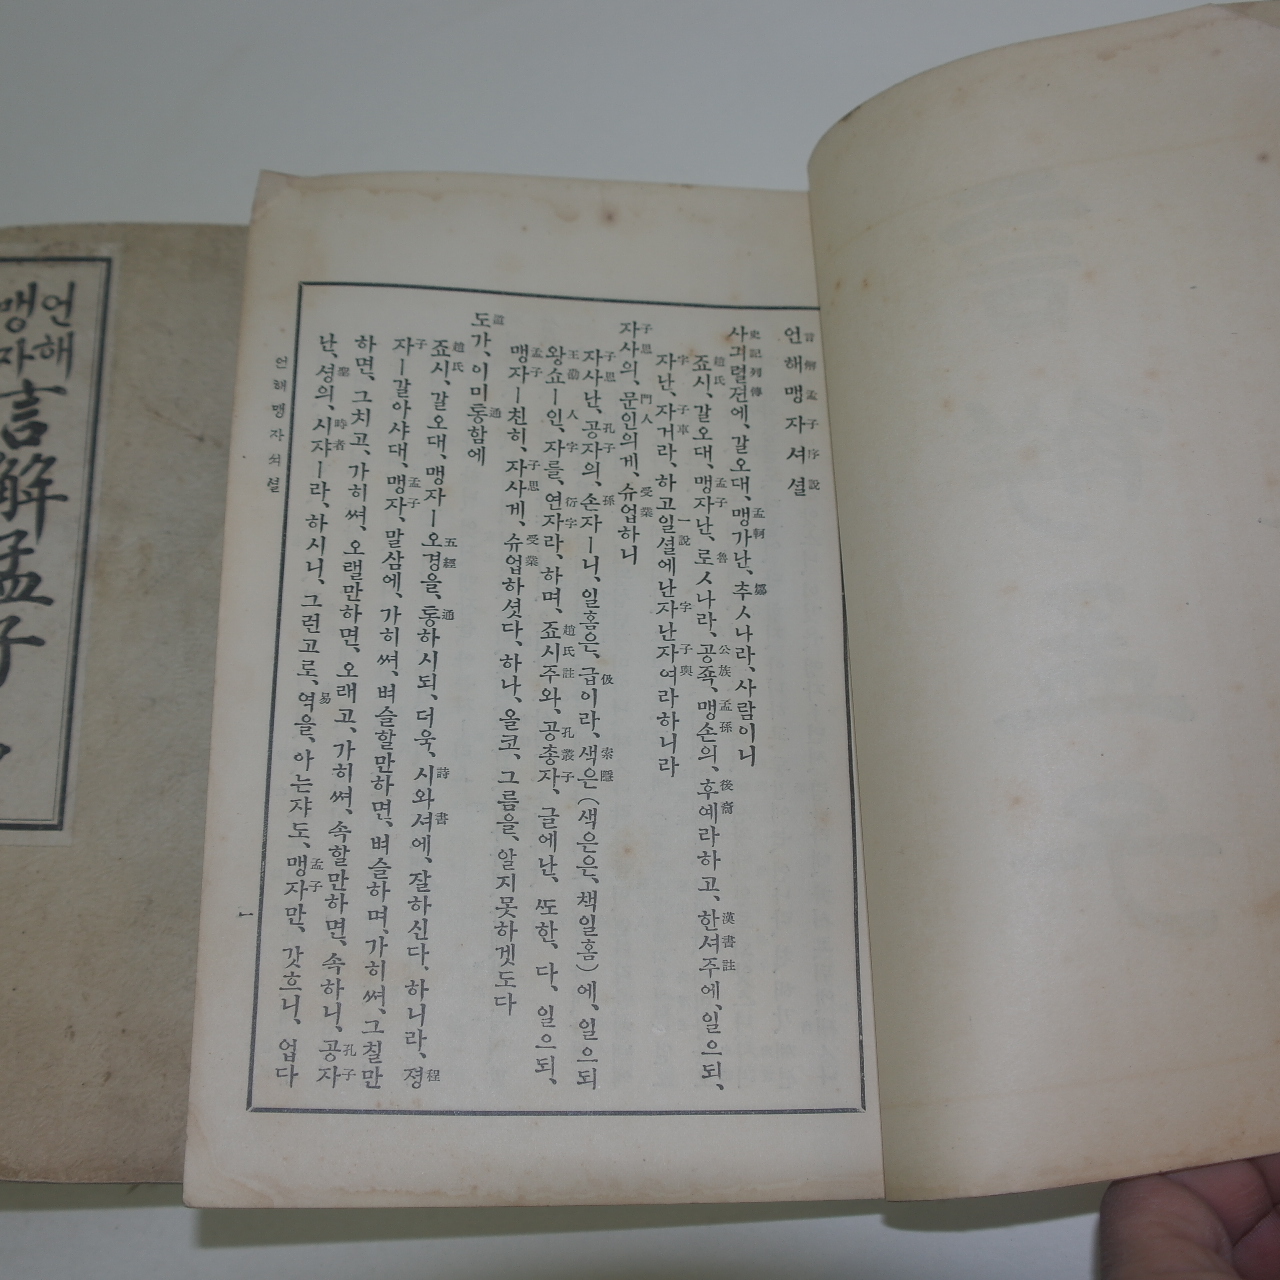 언해맹자셔셜
言解孟子序說
사긔렬젼에、갈오대、맹가난、추ㅅ나라、사람이니
史記列傳 孟軻 鄒
죠시、갈오대、맹자난、로ㅅ나라、공죡、맹손의、후예라하고、한셔주에、일으되、
趙氏 孟子 魯 公族 孟孫 後裔 漢書註
자난、자거라、하고일셜에난자난자여라하니라
字 子車 一說 字 子輿
자사의、문인의게、슈업하니
子思 門人 受業
자사난、공자의、손자ㅣ니、일홈은、급이라、색은(색은은、책일홈)에、일으되
子思 孔子 孫 伋 索隱
왕쇼ㅣ인、자를、연자라、하며、죠시주와、공총자、글에난、ᄯᅩ한、다、일으되、
王劭 人 字 衍字 趙氏註 孔叢子
맹자ㅣ친히、자사게、슈업하셧다、하나、올코、그름을、알지못하겟도다
孟子 子思 受業
도가、이미통함에
道 通
죠시、갈오대、맹자ㅣ오경을、통하시되、더욱、시와셔에、잘하신다、하니라、졍
趙氏 五經 通 詩 書 程
자ㅣ갈아샤대、맹자、말삼에、가히써、벼슬할만하면、벼슬하며、가히써、그칠만
子 孟子
하면、그치고、가히써、오랠만하면、오래고、가히써、속할만하면、속하니、공자
孔子
난、셩의、시쟈ㅣ라、하시니、그런고로、역을、아는쟈도、맹자만、갓흐니、업다
聖 時者 易 孟子
언해맹자셔셜
一
언해
맹자
言解孟子